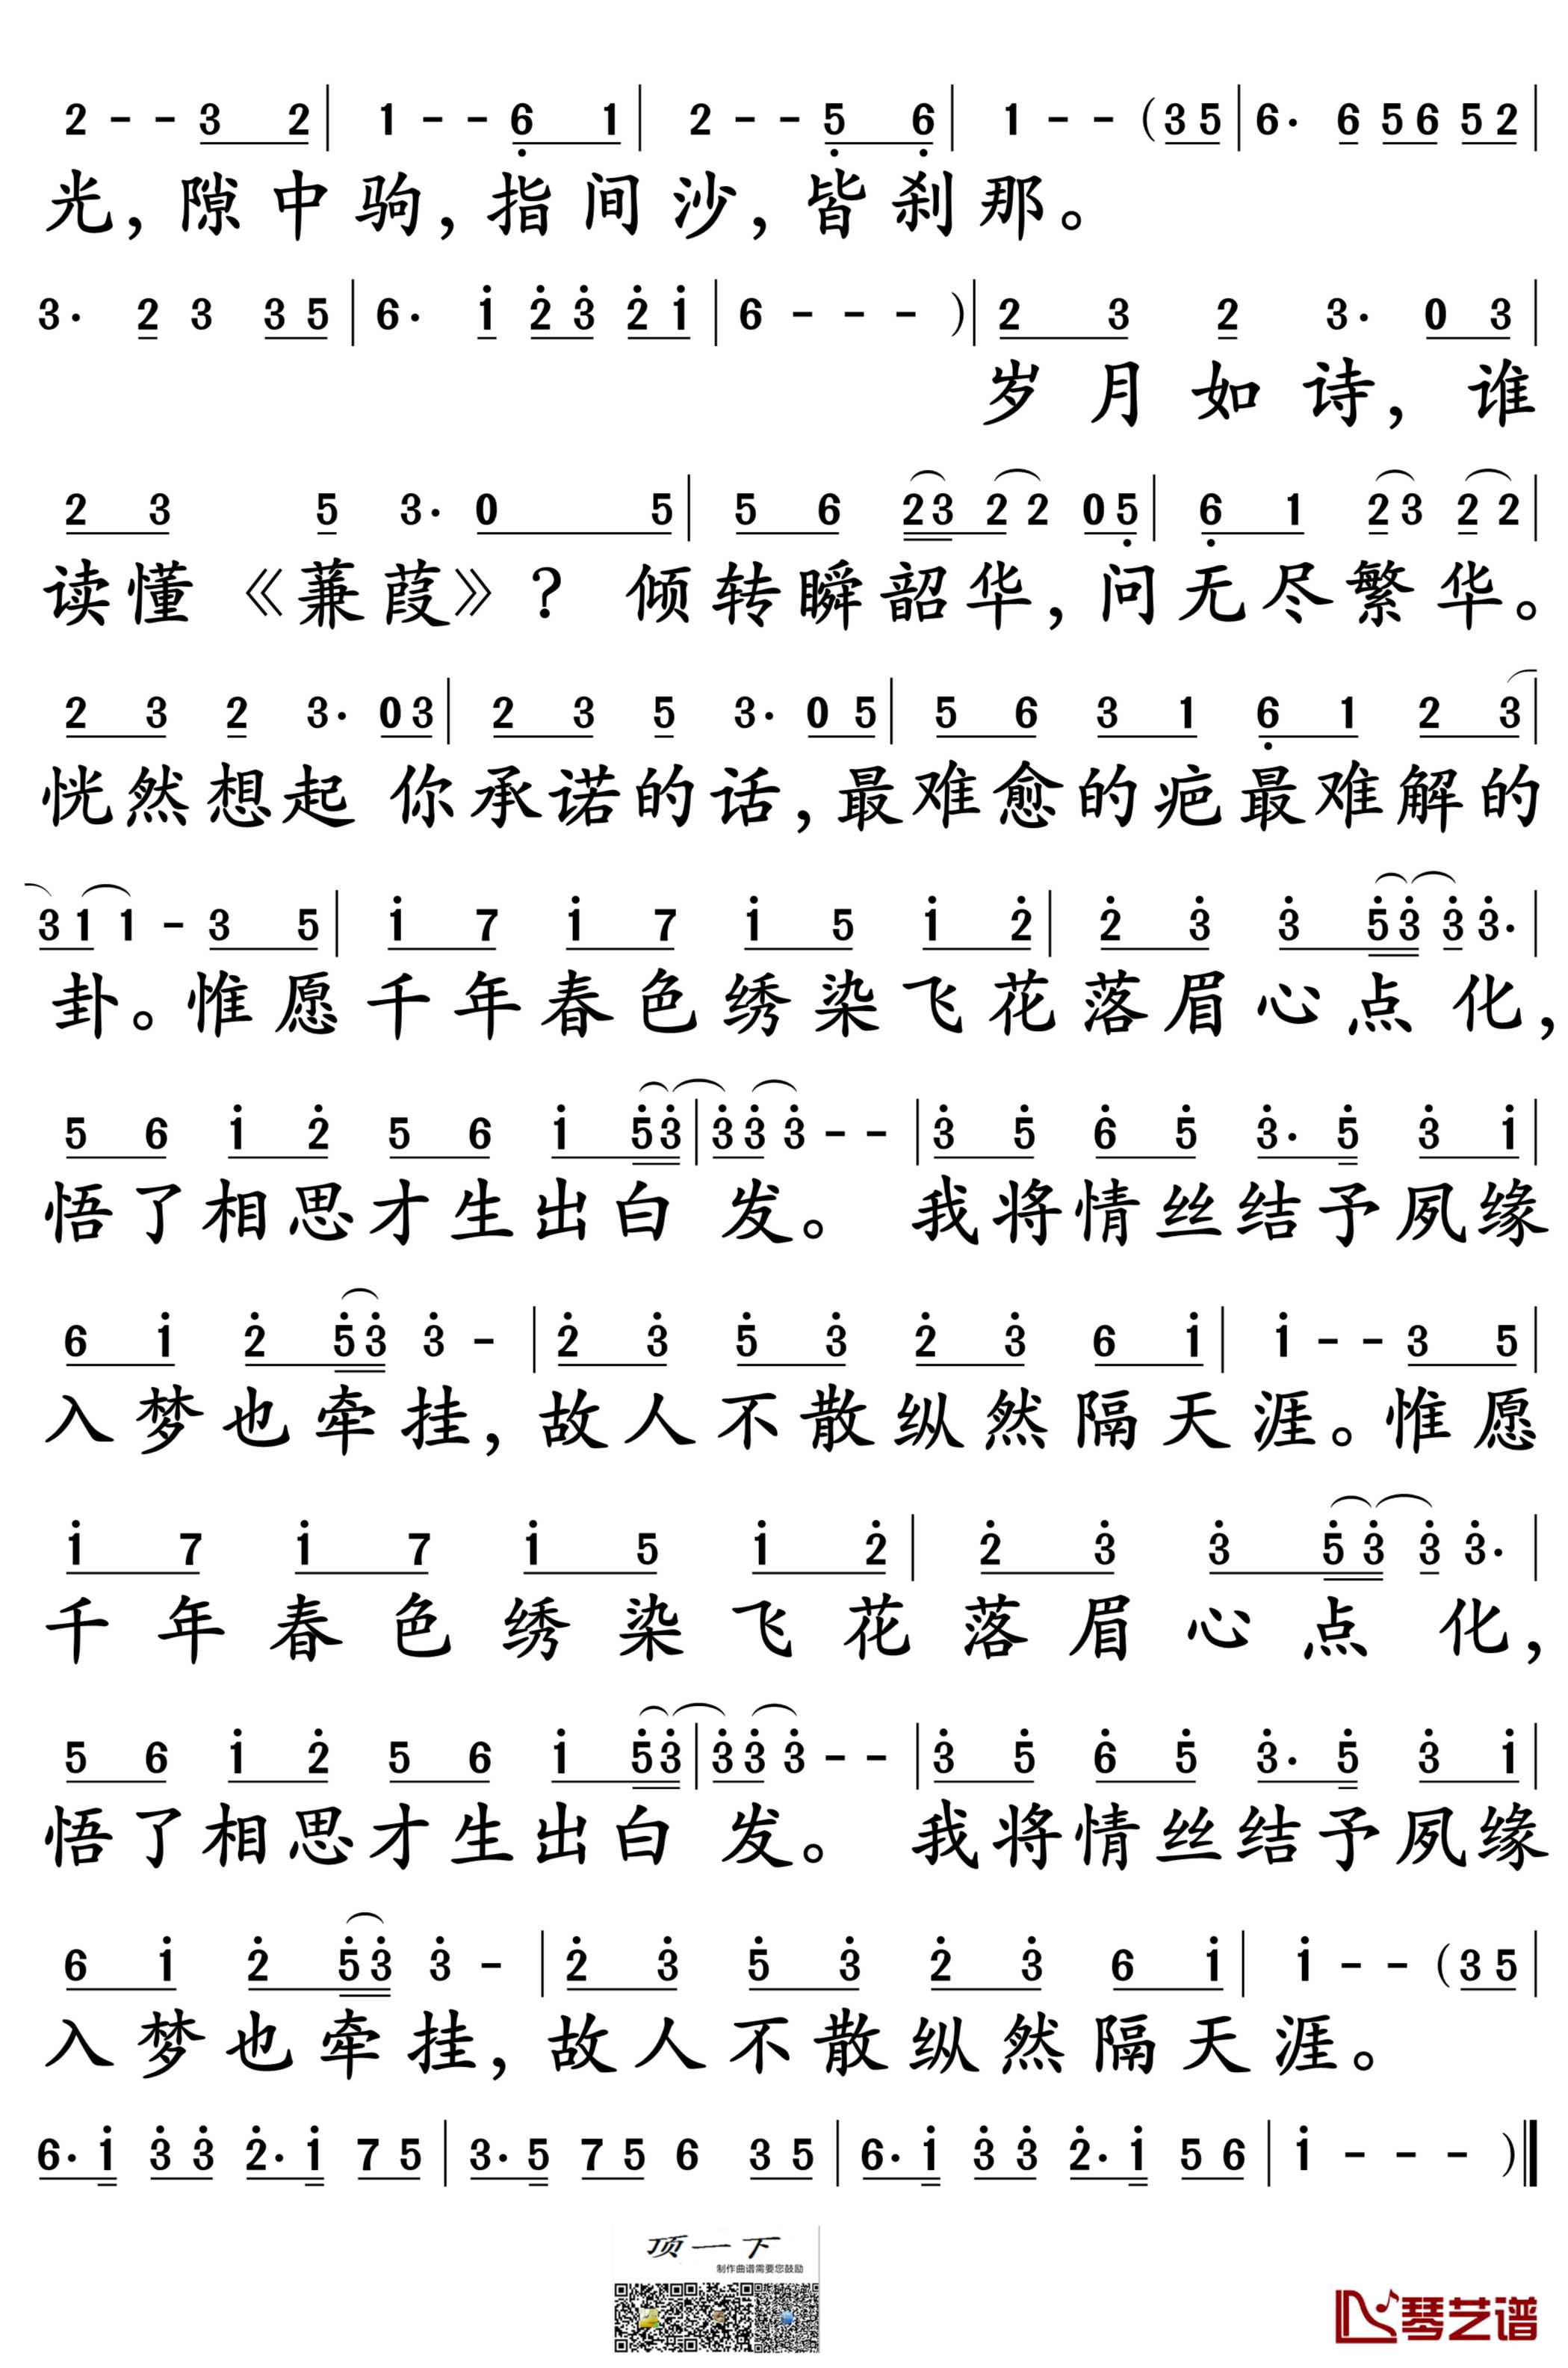 2 - - 3 2 | 1 - - 6̣ 1 | 2 - - 5̣ 6̣ | 1 - - ( 3 5 | 6· 6 5 6 5 2 |
光，隙中驹，指间沙，皆刹那。
3· 2 3 3 5 | 6· i̇ 2̇ 3̇ 2̇ i̇ | 6 - - - ) | 2 3 2 3· 0 3 |
岁月如诗，谁
2 3 5 3· 0 5 | 5 6 2 3 2 2 0 5̣ | 6̣ 1 2 3 2 2 |
读懂《蒹葭》？倾转瞬韶华，问无尽繁华。
2 3 2 3· 0 3 | 2 3 5 3· 0 5 | 5 6 3 1 6̣ 1 2 3 |
恍然想起 你承诺的话，最难愈的疤最难解的
3 1 1 - 3 5 | i̇ 7 i̇ 7 i̇ 5 i̇ 2̇ | 2̇ 3̇ 3̇ 5̇ 3̇ 3̇ 3̇· |
卦。惟愿千年春色绣染飞花落眉心点化，
5 6 i̇ 2̇ 5 6 i̇ 5̇ 3̇ | 3̇ 3̇ 3̇ - - | 3̇ 5̇ 6̇ 5̇ 3̇· 5̇ 3̇ i̇ |
悟了相思才生出白发。我将情丝结予夙缘
6 i̇ 2̇ 5̇ 3̇ 3̇ - | 2̇ 3̇ 5̇ 3̇ 2̇ 3̇ 6 i̇ | i̇ - - 3 5 |
入梦也牵挂，故人不散纵然隔天涯。惟愿
i̇ 7 i̇ 7 i̇ 5 i̇ 2̇ | 2̇ 3̇ 3̇ 5̇ 3̇ 3̇ 3̇· |
千年春色绣染飞花落眉心点化，
5 6 i̇ 2̇ 5 6 i̇ 5̇ 3̇ | 3̇ 3̇ 3̇ - - | 3̇ 5̇ 6̇ 5̇ 3̇· 5̇ 3̇ i̇ |
悟了相思才生出白发。我将情丝结予夙缘
6 i̇ 2̇ 5̇ 3̇ 3̇ - | 2̇ 3̇ 5̇ 3̇ 2̇ 3̇ 6 i̇ | i̇ - - ( 3 5 |
入梦也牵挂，故人不散纵然隔天涯。
6· i̇ 3̇ 3̇ 2̇· i̇ 7 5 | 3· 5 7 5 6 3 5 | 6· i̇ 3̇ 3̇ 2̇· i̇ 5 6 | i̇ - - - ) ‖
顶一下
制作曲谱需要您鼓励
琴艺谱